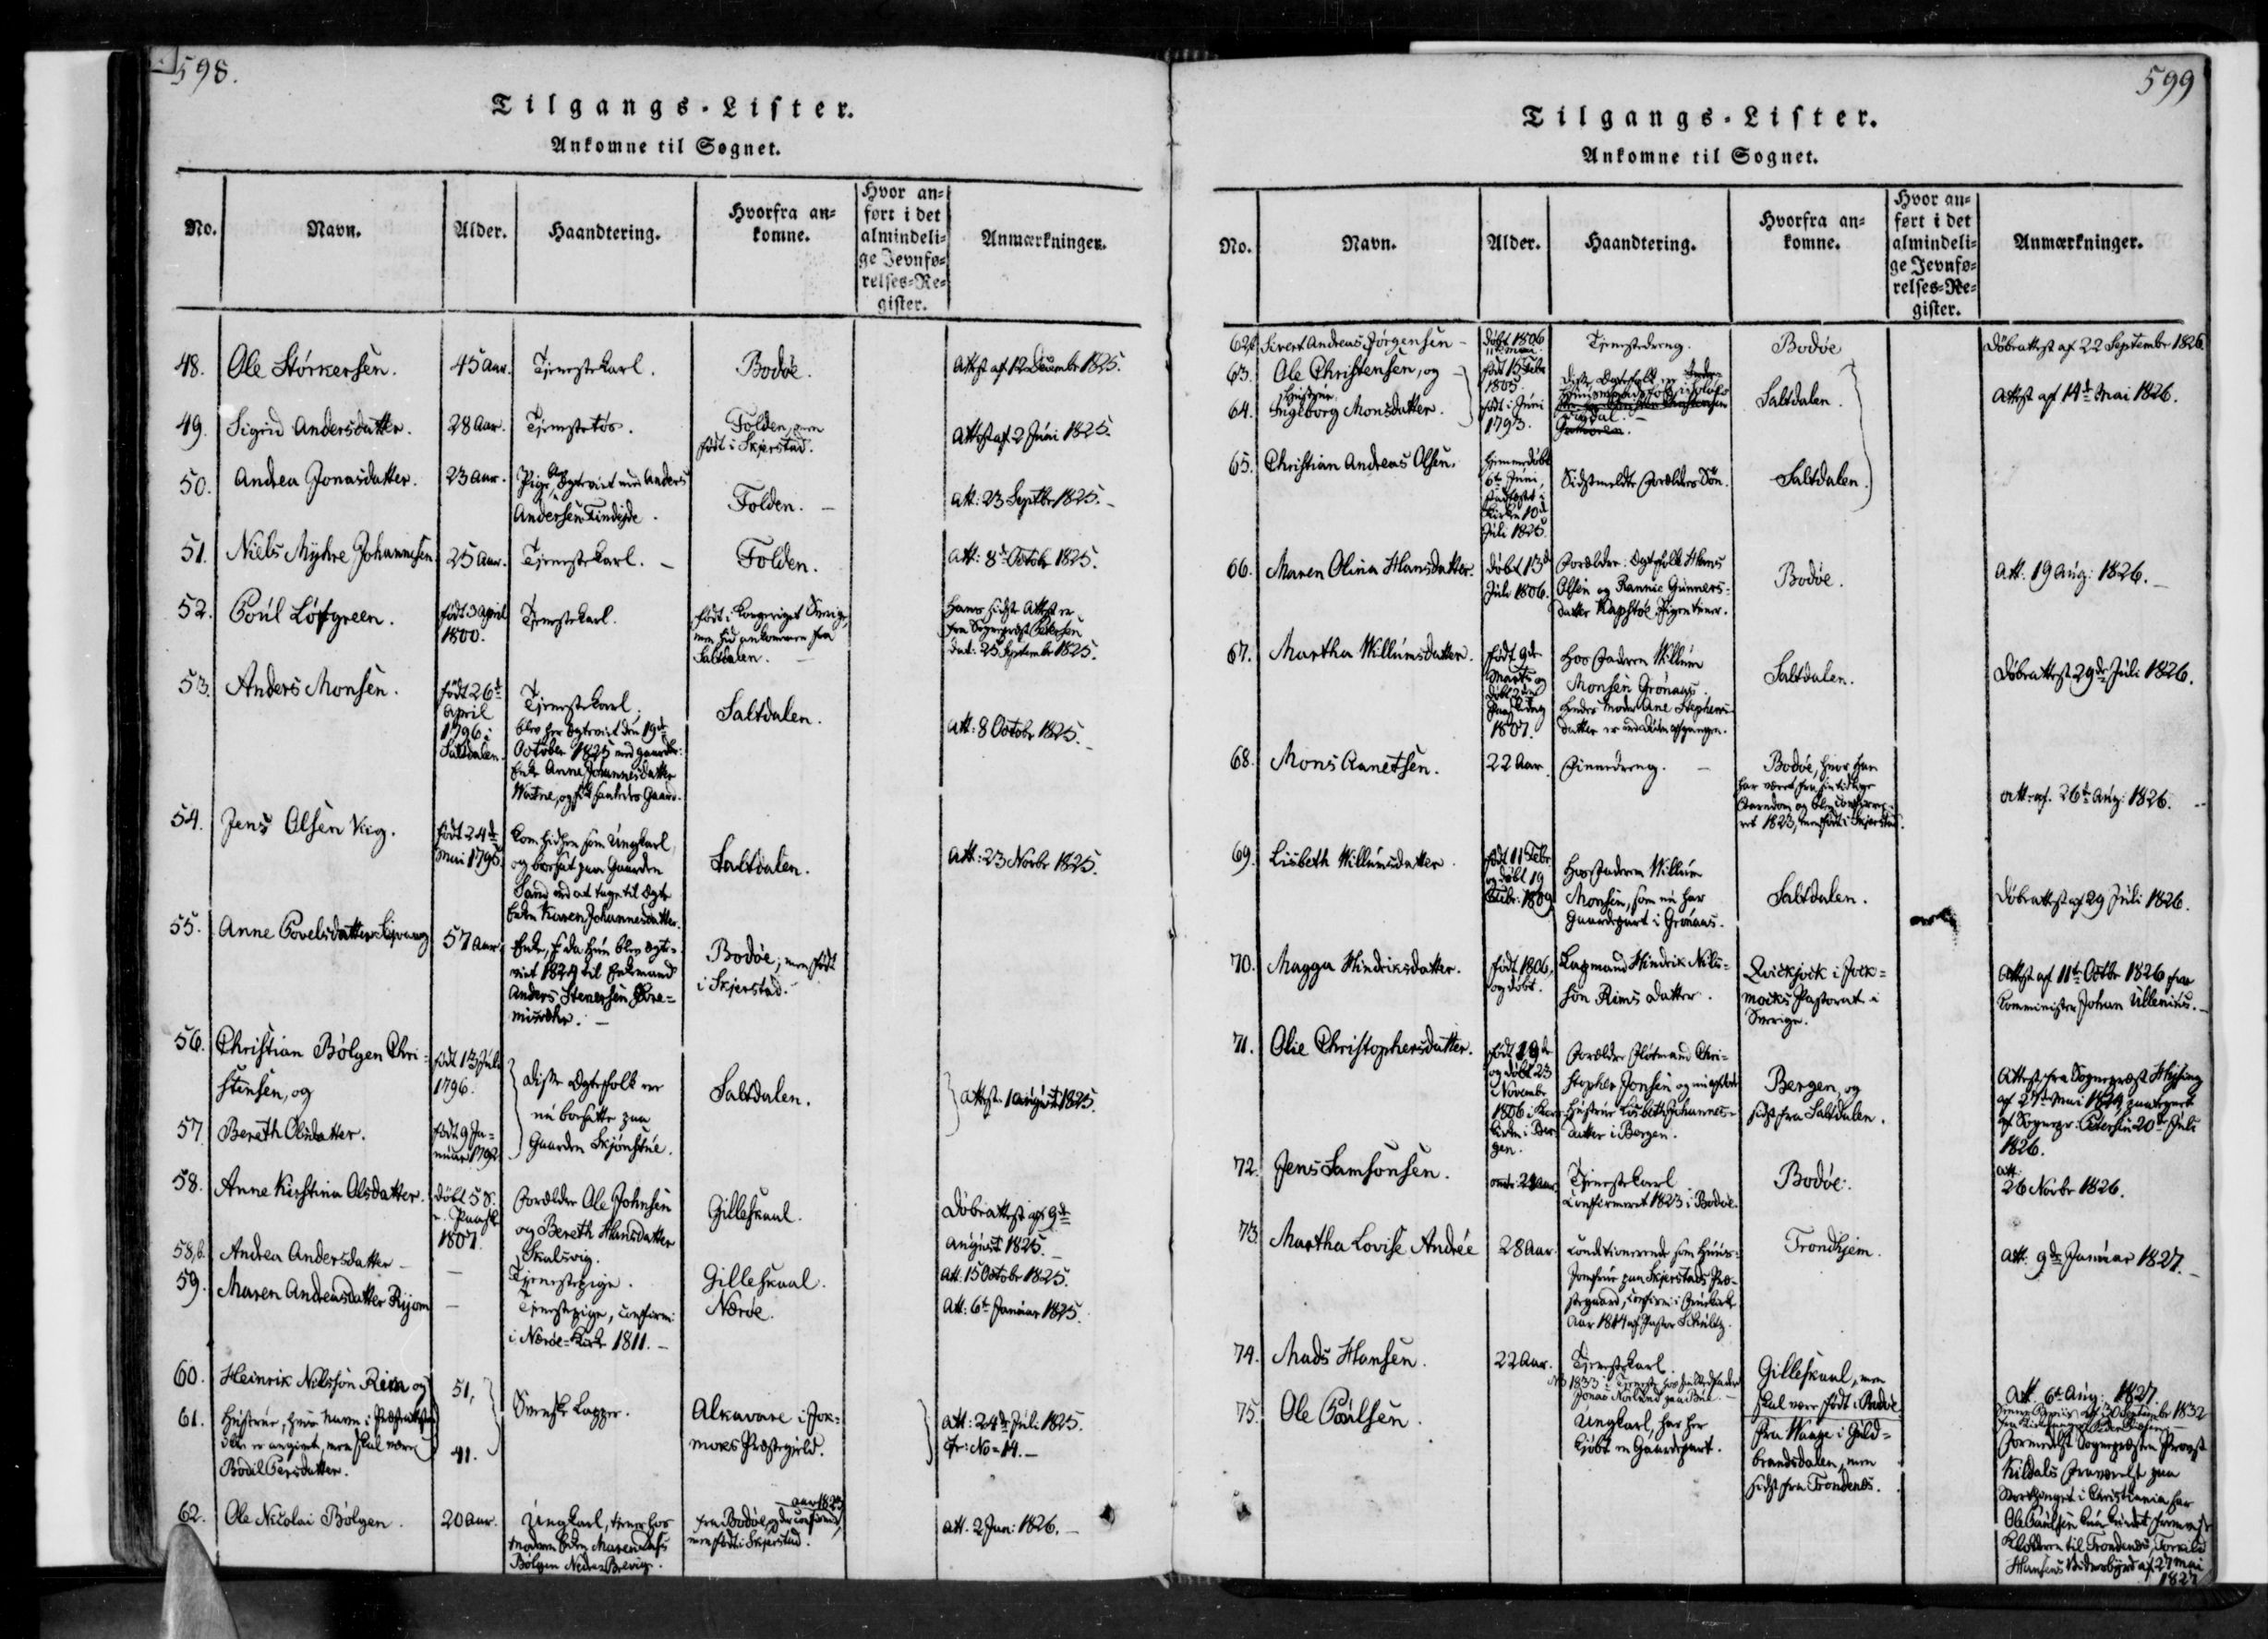 598.
Tilgangs-Lister.
Ankomne til Sognet.
No. Navn. Alder. Haandtering. Hvorfra ankomne. Hvor anført i det almindelige Jevnførelses-Register. Anmærkninger.
48. Ole Størkersen. 45 Aar. Tjenestekarl. Bodøe. Attest af 12 December 1825.
49. Sigrid Andersdatter. 28 Aar. Tjenestetøs. Folden, men
født i Skjerstad. Attest af 2 Juni 1825.
50. Andrea Jonasdatter. 23 Aar. Pige, Ægteviet med Anders
Andersen Findejde. Folden. Att: 23 Septbr 1825.
51. Niels Myhre Johannesen 25 Aar. Tjenestekarl. Folden. Att: 8de Octobr 1825.
52. Poul Löfgreen. født 3 April
1800. Tjenestekarl. født i Kongeriget Sverige,
men hid ankommen fra
Saltdalen. Hans sidste Attest er
fra Sognepræst Petersen
dat: 25 September 1825.
53. Anders Monsen. født 26de
April
1796 i
Saltdalen. Tjenestekarl;
blev her ægteviet den 19de
October 1825 med Gaardbr:
Enke Anne Johannesdatter
Saltdalen. Att: 8 Octobr 1825.
54. Jens Olsen Vig. født 24de
Mai 1795. Kom hidhen som Ungkarl,
og bosat paa Gaarden
Sand ved at tage til Ægte
Enken Karen Johannesdatter. Saltdalen. Att: 23 Novbr 1825.
55. Anne Povelsdatter 57 Aar. Enke, da hun blev ægte-
viet 1824 til Enkemand
Anders Stenersen
Bodøe; men født
i Skjerstad.
56. Christian Bølgen Chri-
stensen, og født 13 Juli
1796. disse Ægtefolk ere
nu bosatte paa
Gaarden Skjønstue. Saltdalen. Attest. 1 August 1825.
57. Bereth Olsdatter. født 9 Ja-
nuar 1792.
58. Anne Kirstina Olsdatter. døbt 5 S.
e. Paaske
1807. Forældre Ole Johnsen
og Bereth Hansdatter
Skalsvig. Gilleskaal. Døbeattest af 9de
August 1825.
58,b. Andrea Andersdatter Tjenestepige. Gilleskaal. Att. 15 Octobr 1825.
59. Maren Andreasdatter Rijom Tjenestepige, confirm:
i Nærøe-Kirke 1811. Nærøe. Att: 6te Januar 1825.
60. Heinrik Nilsson Rim og 51, Svenske Lapper. Alkavare i Jok-
moks Præstegjeld. Att: 24de Juli 1825.
Cfr: No 14.
61. Hustrue, hvis Navn i Præsteattesten
ikke er angivet, men skal være
Bodil Persdatter. 41.
62. Ole Nicolai Bølgen. 20 Aar. Ungkarl, tjener hos
Moderen Enken Maren
Bølgen Nedre Brevig. fra Bodøe, der confirmeret
Aar 1823,
men født i Skjerstad. Att. 2 Jan: 1826.
599
Tilgangs-Lister.
Ankomne til Sognet.
No. Navn. Alder. Haandtering. Hvorfra ankomne. Hvor anført i det almindelige Jevnførelses-Register. Anmærkninger.
62,b. Sivert Andreas Jørgensen døbt 1806
11te Mai. Tjenestedreng. Bodøe Døbeattest af 22 September 1826.
63. Ole Christensen, og født 15 Febr
1805. Disse Ægtefolk ere
Saltdalen. Attest af 14de Mai 1826.
64. Hustrue
Ingeborg Monsdatter. født i Juni
1793.
65. Christian Andreas Olsen. Hjemmedøbt
6te Juni,
stadfæstet i
Kirken 10de
Juli 1825. Sidstmeldte Forældres Søn. Saltdalen.
66. Maren Olina Hansdatter. døbt 13de
Juli 1806. Forældre: Ægtefolk Hans
Olsen og Rannie Gunners-
datter Kapstøe. Pigen tiener. Bodøe. Att. 19 Aug: 1826.
67. Martha Willumsdatter. født 9de
Marts og
døbt
1807. Hos Faderen Willum
Monsen Grønaas.
Hendes Moder Ane Stephens-
datter er ved Døden afgangen. Saltdalen. Døbeattest 29de Juli 1826.
68. Mons Annetsen. 22 Aar. Finnedreng. Bodøe, hvor han
har været fra sin tidlige
Barndom og blev confirme-
ret 1823, men født i Skjerstad. Att. af. 26de Aug: 1826.
69. Lisbeth Willumsdatter. født 11 Febr
og døbt 19
Febr. 1809. Hos Faderen Willum
Monsen, som nu har
Gaardepart i Grønaas. Saltdalen. Døbeattest af 29 Juli 1826.
70. Magga Hindriksdatter. født 1806,
og døbt. Lapmand Hindrik Nils-
son Rims Datter. Qvickjock i Jock-
mocks Pastorat i
Sverige. Attest af 11te Octbr 1826 fra
Comminister Johan Ullenius.
71. Olie Christophersdatter. født 19de
og døbt 23
November
1806 i Kors-
kirken i Ber-
gen. Forældre Flötmand Chri-
stopher Jonsen og
Hustrue Lisbeth Johannes-
datter i Bergen. Bergen, og
sidst fra Saltdalen. Attest fra Sognepræst
af 27de Mai 1824 paategnet
af Sognepr: Petersen 20de Juli
1826.
72. Jens Samsonsen. omtr: 21 Aar. Tjenestekarl
Confirmeret 1823 i Bodøe. Bodøe. att.
26 Novbr 1826.
73. Martha Lovise Andrée 28 Aar. Conditionerende som Huus-
Jomfrue paa Skjerstads Præ-
stegaard,
Aar 1814 af Pastor Schultz. Trondhjem. Att. 9de Januar 1827.
74. Mads Hansen. 22 Aar. Tjenestekarl.
Gilleskaal, men
skal være født i Bodøe. Att. 6te Aug: 1827
75. Ole Paulsen. Ungkarl, har her
kjøbt en Gaardepart. Fra Waage i Guld-
brandsdalen, men
sidst fra Trondenes.
Formedelst Sognepræsten Provst
Kildals Fraværelse paa
Storthinget i Christiania har
Ole Paulsen
Klokkeren til Trondenes, Torkild
Hansens Vidnesbyrd af 27 Mai
1827